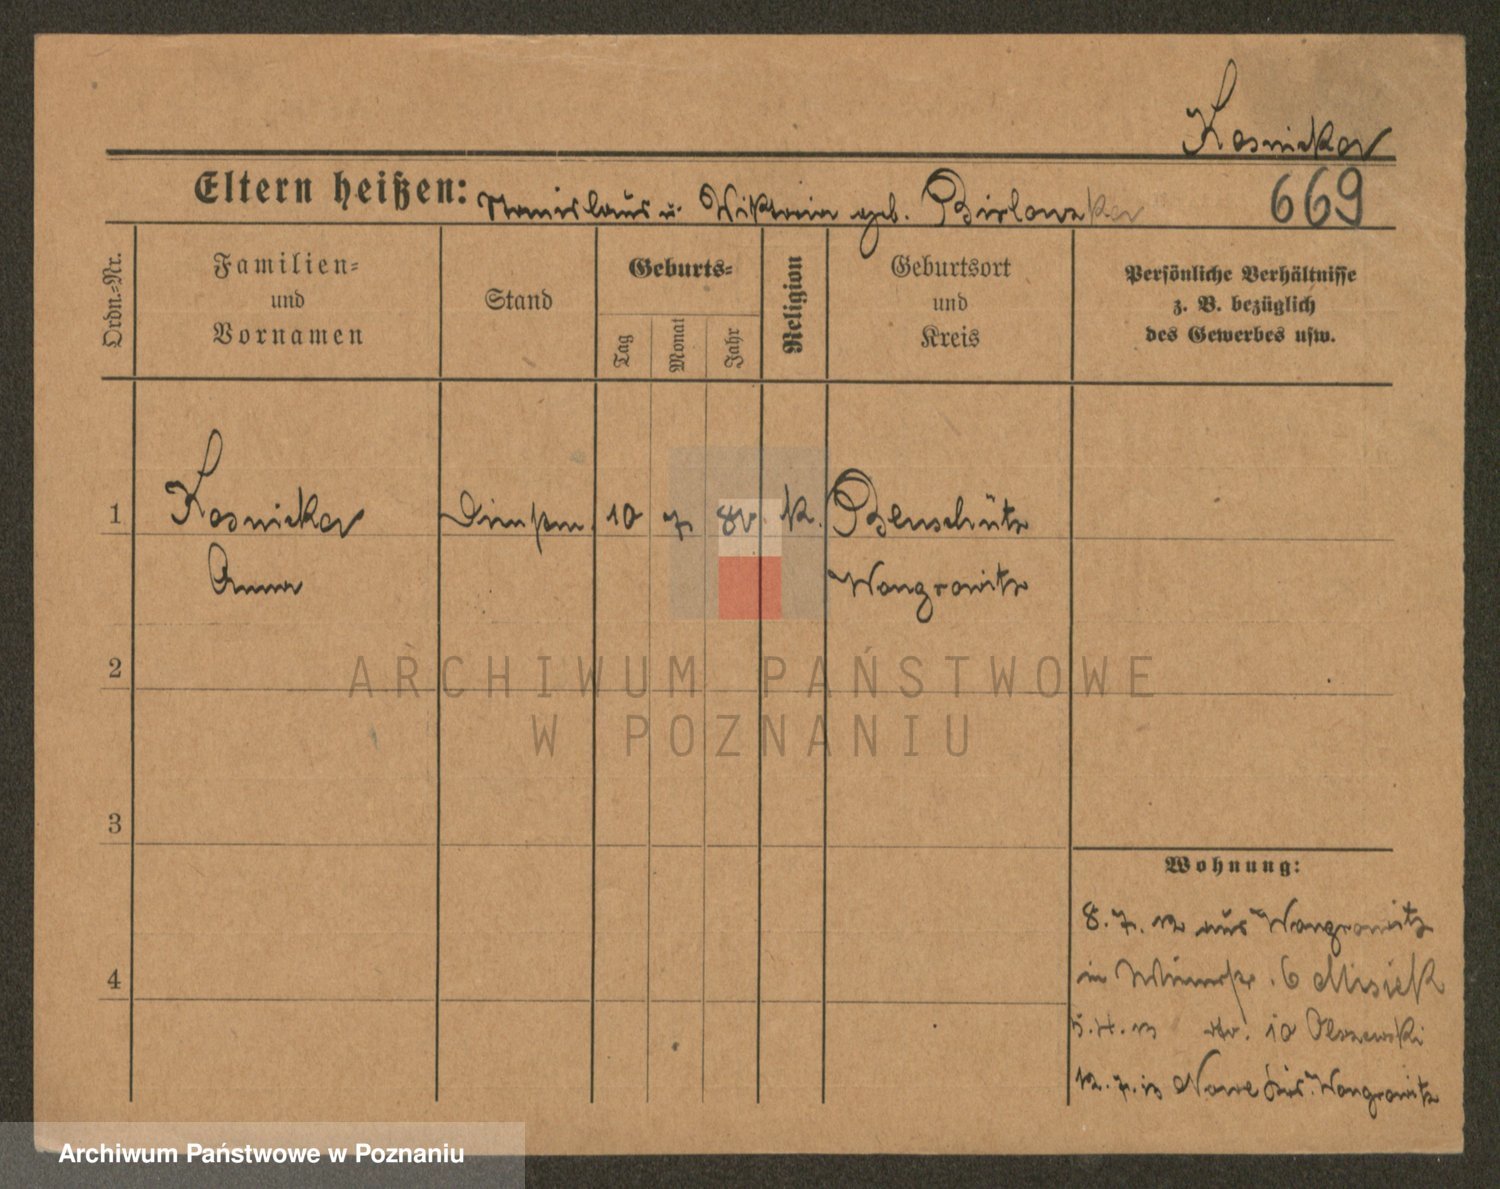 Kosnicka
Eltern heißen: Stanislaus u. Wiktoria geb. Birlowska
669
Ordn.-Nr.
Familien-
und
Vornamen
Stand
Geburts-
Tag
Monat
Jahr
Religion
Geburtsort
und
Kreis
Persönliche Verhältnisse
z. B. bezüglich
des Gewerbes usw.
1 Kosnicka 10 7 k.
Anna Wongrowitz
ARCHIWUM PAŃSTWOWE
W POZNANIU
2
3
4
Wohnung:
8. 7. 12 aus Wongrowitz
in 6 Misiek
5. 4. 13 10 Olszewski
12. 7. 13 Nowe Krs. Wongrowitz
Archiwum Państwowe w Poznaniu